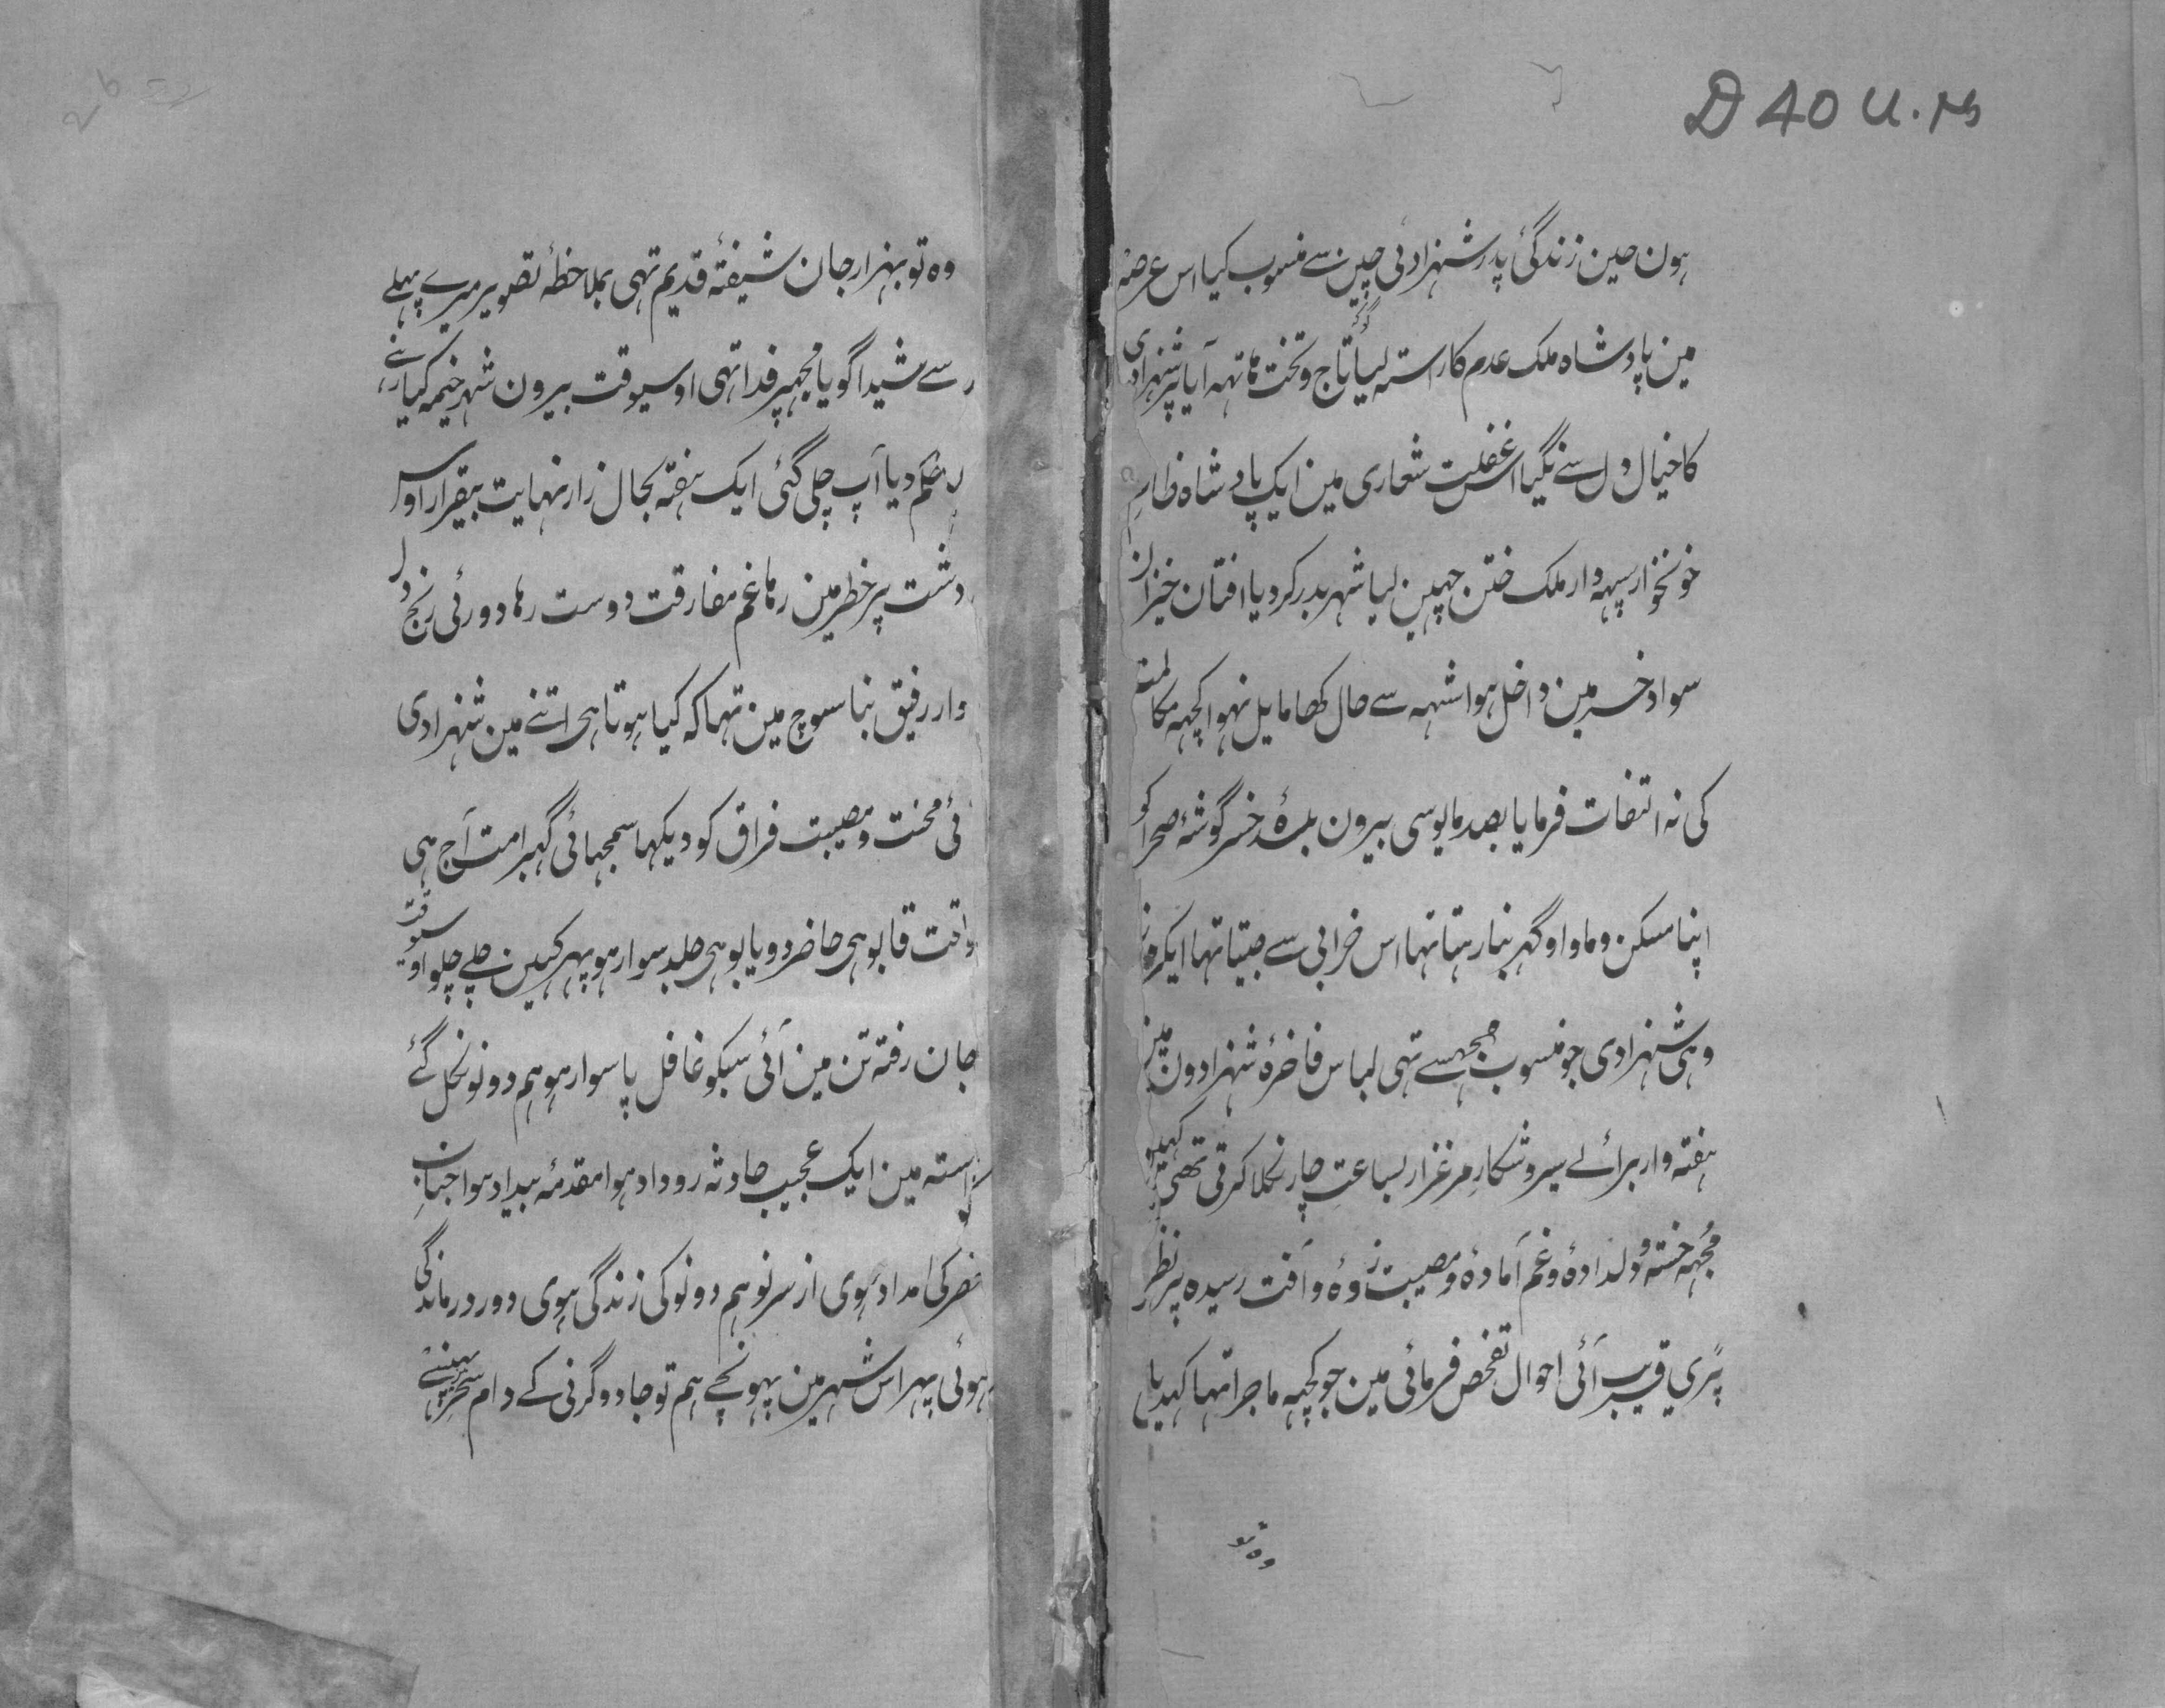 D 40 U.M
ہون حین زندگیٔ پدر شہزادئی چین سے منسوب کیا اس عرصہ
مین پادشاہ ملک عدم کا رستہ لیا تاج و تخت ہاتہہ آیا پر شہزادی
کا خیال دل سے نگیا اس غفلت شعاری مین ایک پادشاہ ظالم
خونخوار سپہدار ملک ختن چہین لیا شہر بدر کر دیا افتان خیزان
سواد خسر مین داخل ہوا شہہ سے حال کہا مایل نہوا کچہہ مکالمتہ
کی نہ التفات فرمایا بصد مایوسی بیرون بلدۂ خسر گوشۂ صحرا کو
اپنا مسکن و ماوا و گہر بنا رہتا تہا اس خرابی سے جیتا تہا ایکروز
وہی شہزادی جو منسوب مجہسے تہی لباس فاخرۂ شہزادون مین
ہفتہ وار برائے سیر و شکارِ مرغزار بساعتِ چار نکلا کرتی تھی
مجہہ خستہ و دلدادہ و غم آمادہ و مصیبت زدہ و آفت رسیدہ پر نظر
پڑی قریب آئی احوال تفحص فرمائی مین جو کچہہ ماجرا تہا کہدیا
وہ تو
وہ تو بہزار جان شیفتۂ قدیم تہی بملاحظۂ تصویر میرے پہلے
سے شیدا گویا مجہپر فدا تہی اوسیوقت بیرون شہر خیمہ کیا
حکم دیا آپ چلی گئی ایک ہفتہ بحال زار نہایت بیقرار اوس
دشت پر خطر مین رہا غم مفارقت دوست رہا دورئی رنج و
دار رفیق بنا سوچ مین تہا کہ کیا ہوتا ہی اتنے مین شہزادی
ئی محنت و مصیبت فراق کو دیکہا سمجہائی گہبرا مت آج ہی
وقت قابو ہی حاضر دو یابو ہی جلد سوار ہو پہر کہین چلے چلو اوسوقت
جان رفتہ تن مین آئی سبکو غافل پا سوار ہو ہم دونو نکل گئے
راستہ مین ایک عجیب حادثہ روداد ہوا مقدمۂ بیداد ہوا جناب
خضر کی امداد ہوی از سر نو ہم دونو کی زندگی ہوی دور درماندگی
ہوئی پہر اس شہر مین پہونچے ہم تو جادوگرنی کے دام سحر